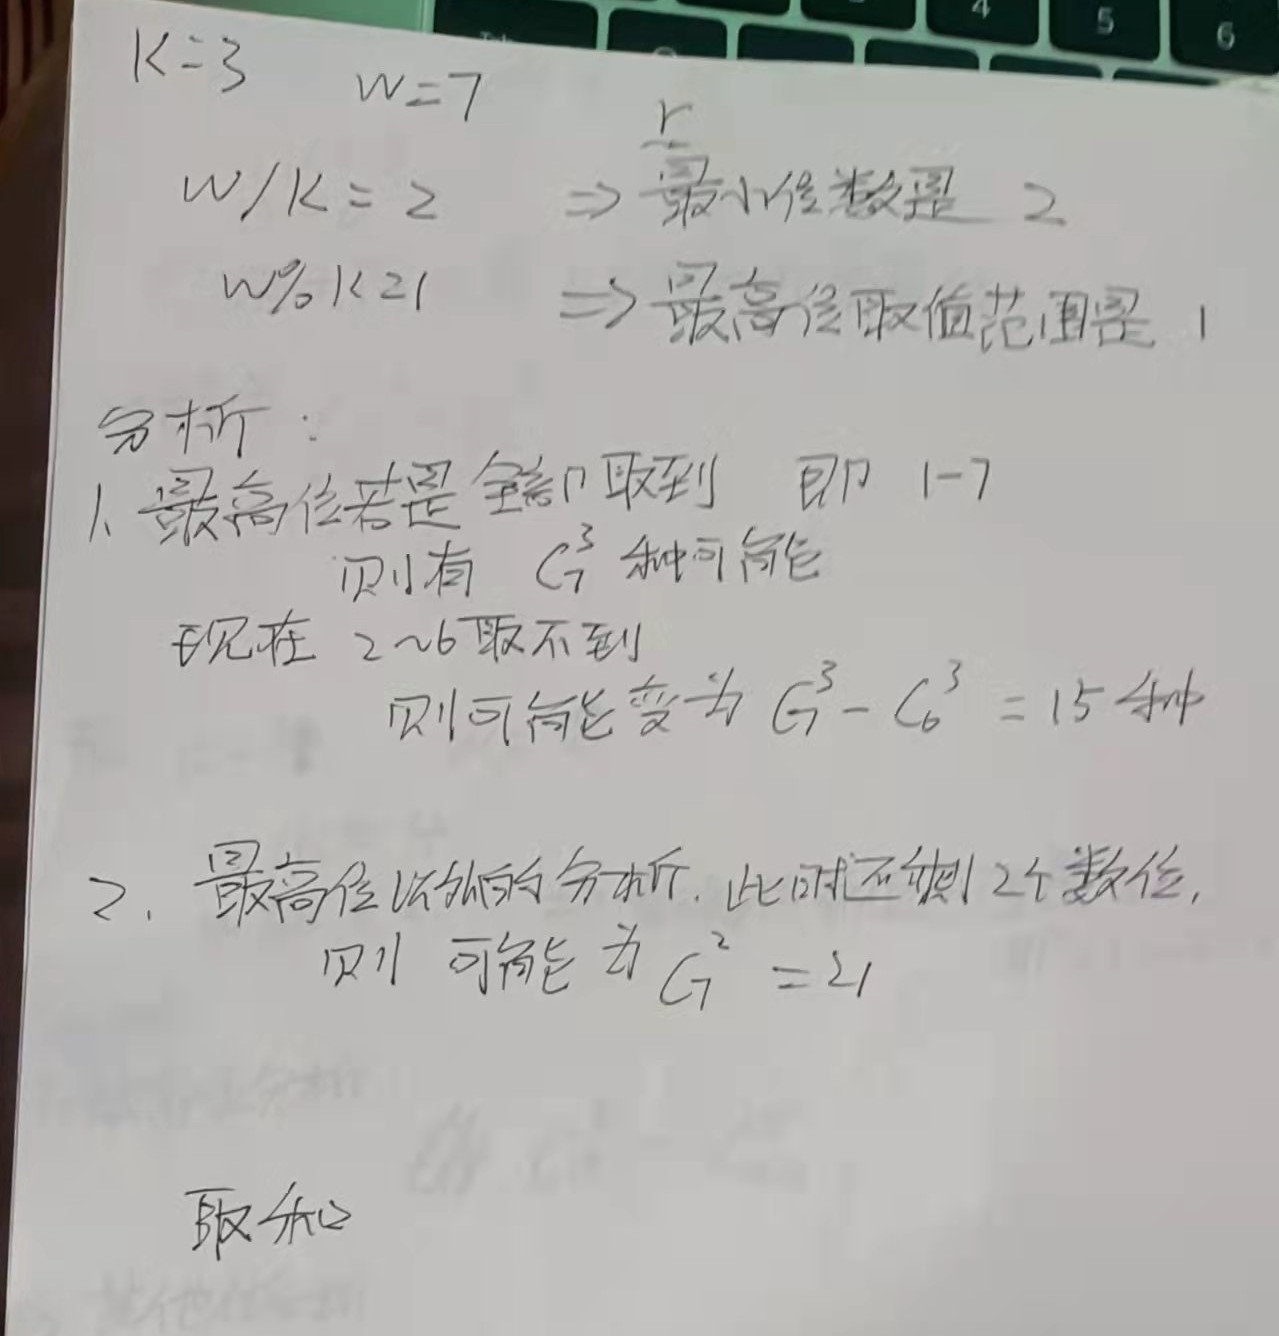 4 5 6
K=3 W=7
r
W/K=2 ⇒ 最小位数是 2
W%K=1 ⇒ 最高位取值范围是 1
分析：
1、最高位若是全部取到 即 1-7
则有 C₇³ 种可能
现在 2~6 取不到
则可能变为 C₇³ - C₆³ = 15 种
2、最高位以外的分析. 此时还剩 2个数位,
则 可能为 C₇² = 21
取和